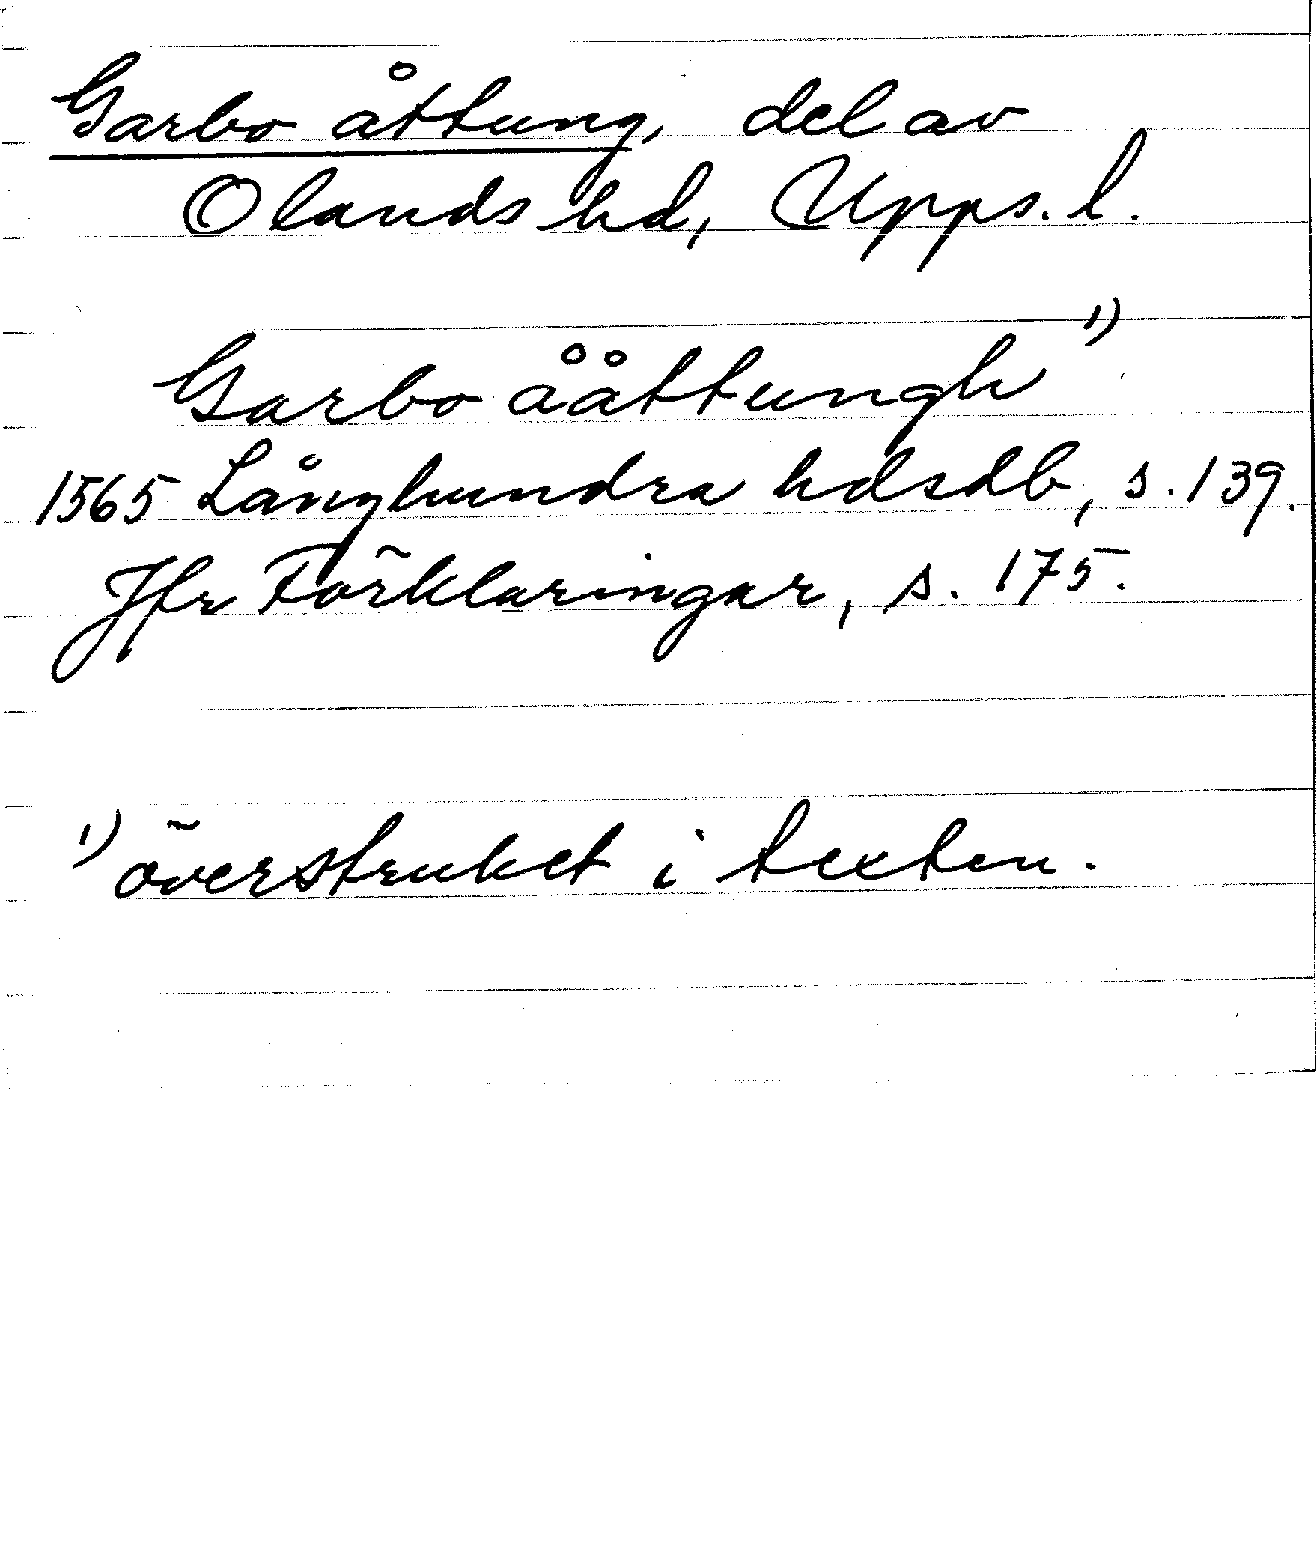 Garbo åttung, del av
Olands hd, Upps. l.
Garbo ååttungh 1)
1565 Långhundra hdsdb, s. 139.
Jfr Förklaringar, s. 175.
1) överstruket i texten.